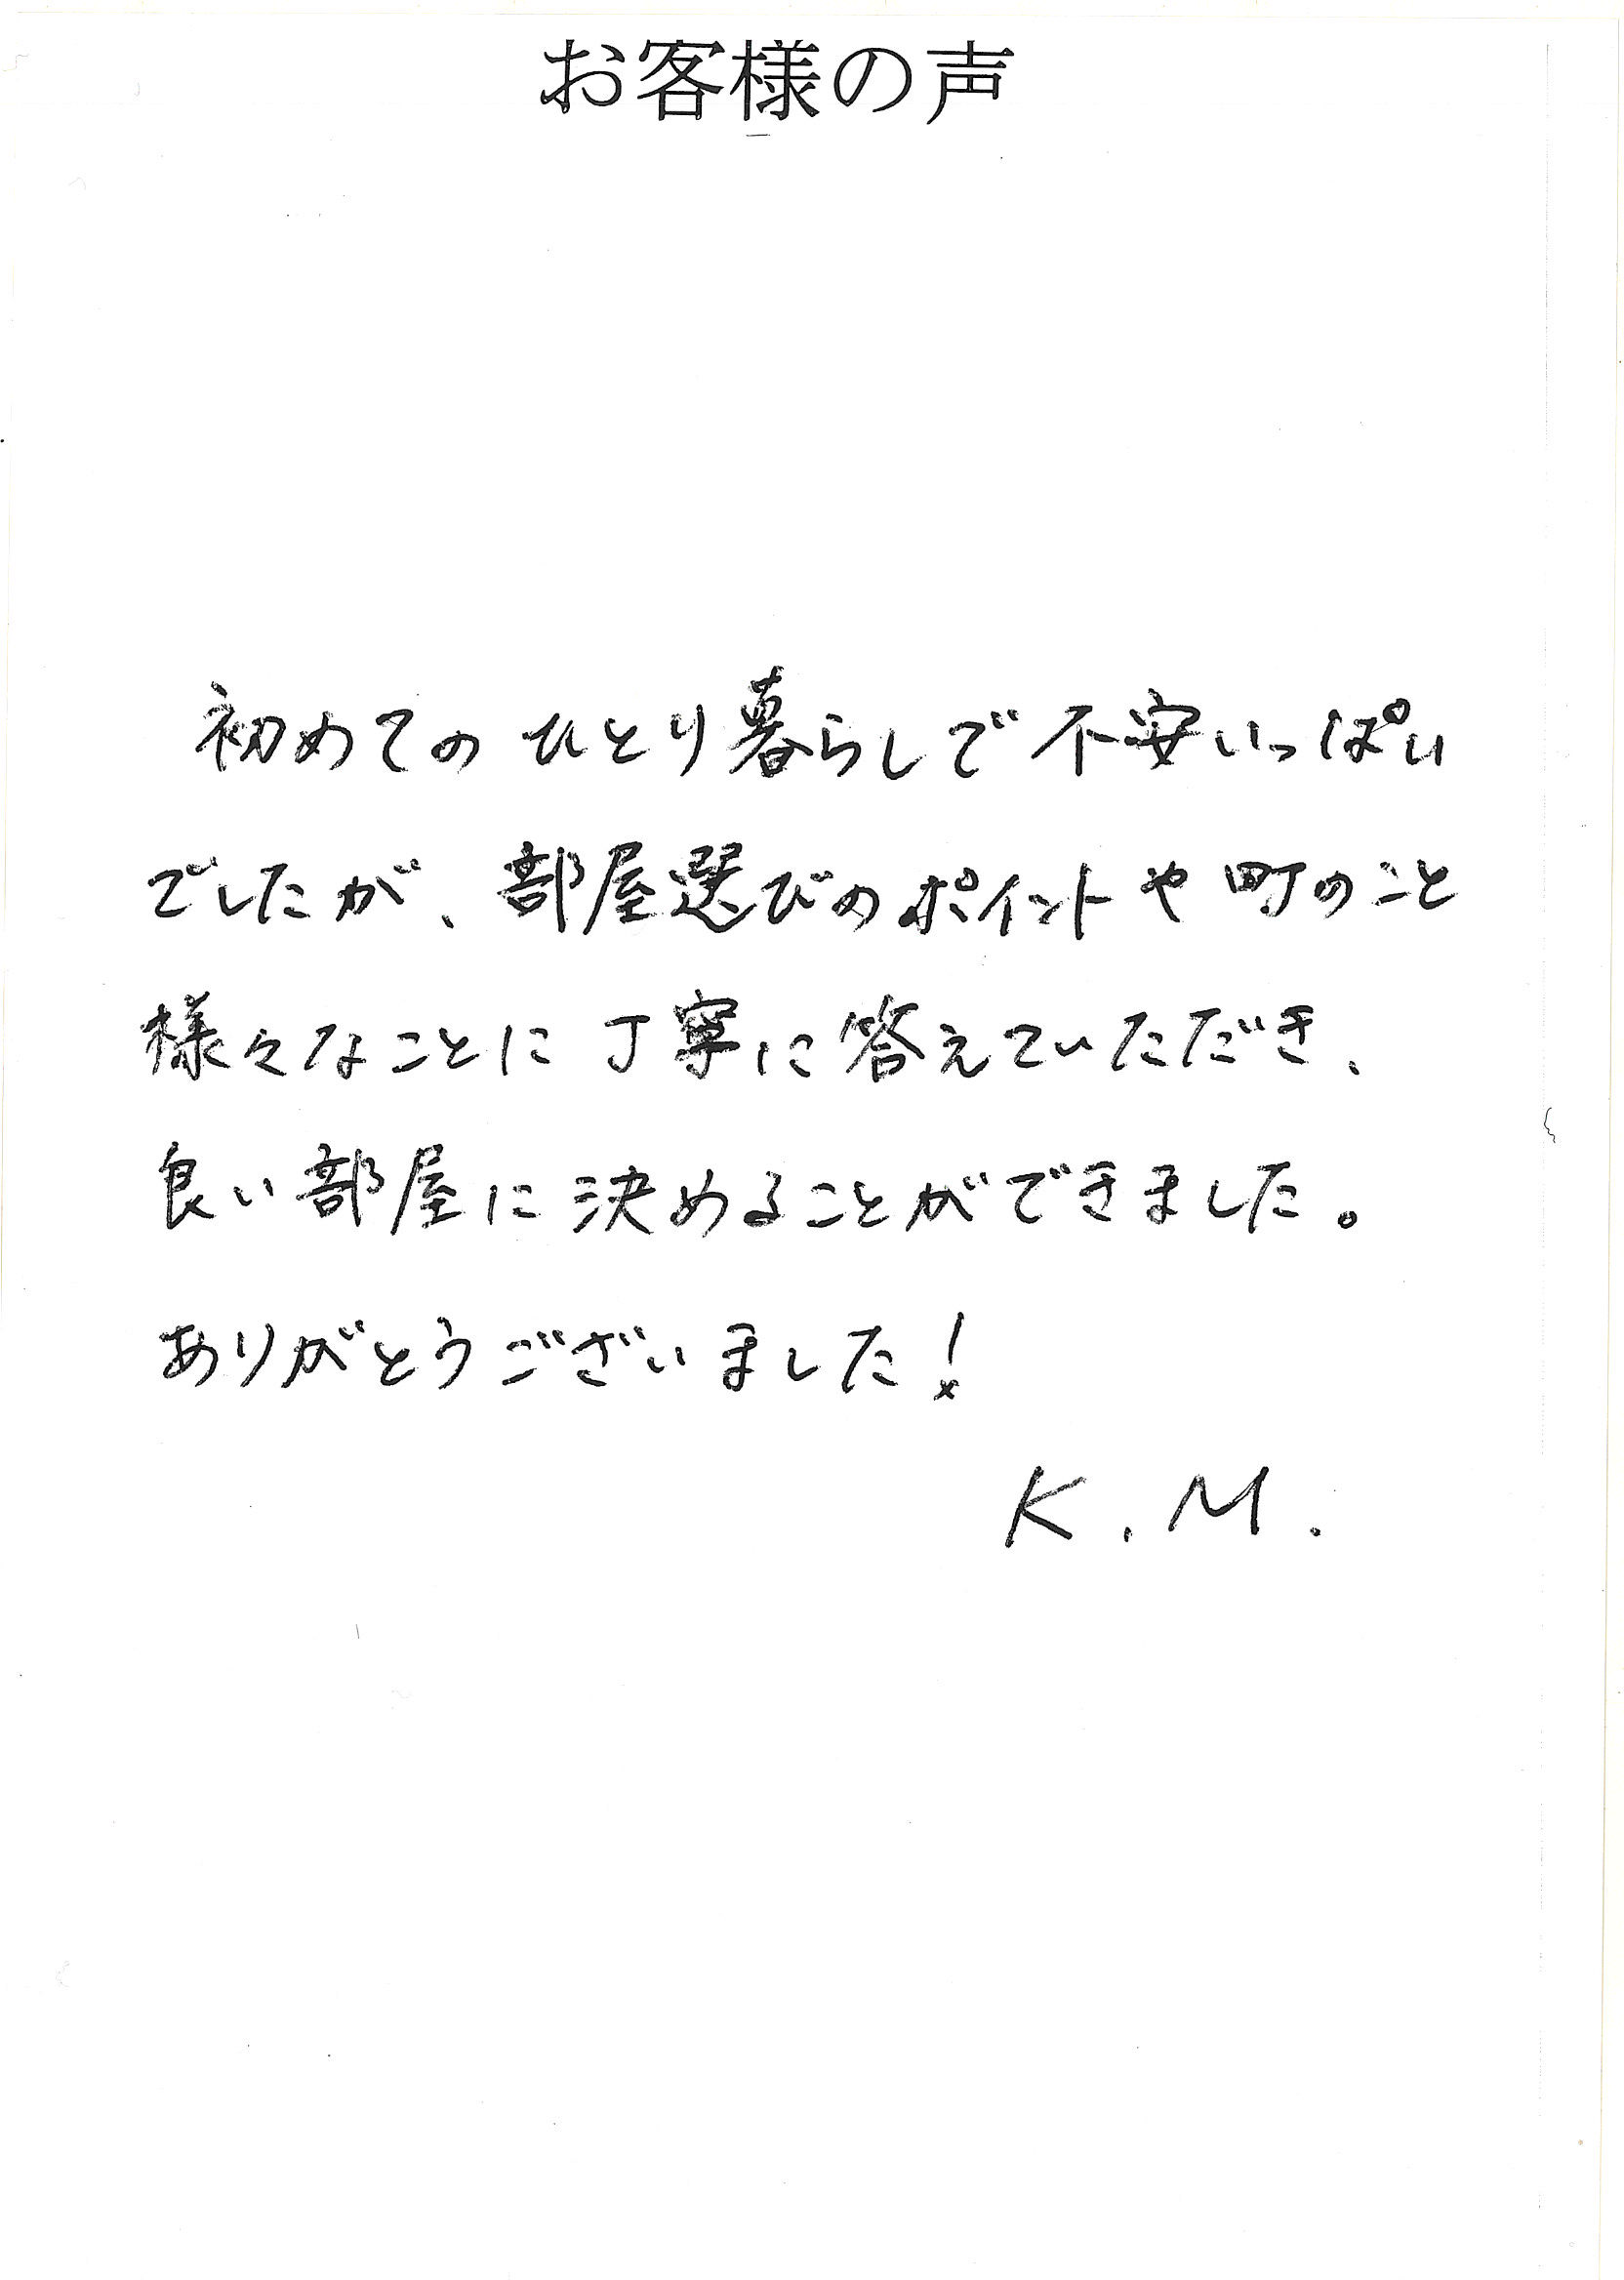 お客様の声
初めてのひとり暮らしで不安いっぱい
でしたが、部屋選びのポイントや町のこと
様々なことに丁寧に答えていただき、
良い部屋に決めることができました。
ありがとうございました!
K.M.